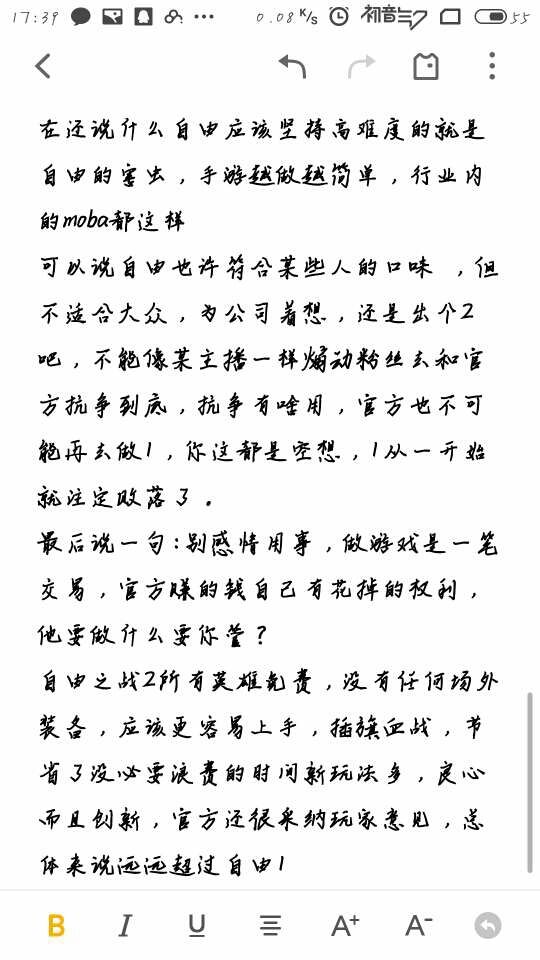 17:39
0.08 K/s
初音
55
在还说什么自由应该坚持高难度的就是
自由的害虫，手游越做越简单，行业内
的moba都这样
可以说自由也许符合某些人的口味 ，但
不适合大众，为公司着想，还是出个2
吧，不能像某主播一样煽动粉丝去和官
方抗争到底，抗争有啥用，官方也不可
能再去做1，你这都是空想，1从一开始
就注定败落了。
最后说一句:别感情用事，做游戏是一笔
交易，官方赚的钱自己有花掉的权利，
他要做什么要你管？
自由之战2所有英雄免费，没有任何场外
装备，应该更容易上手，插旗血战，节
省了没必要浪费的时间新玩法多，良心
而且创新，官方还很采纳玩家意见，总
体来说远远超过自由1
B I U A+ A-